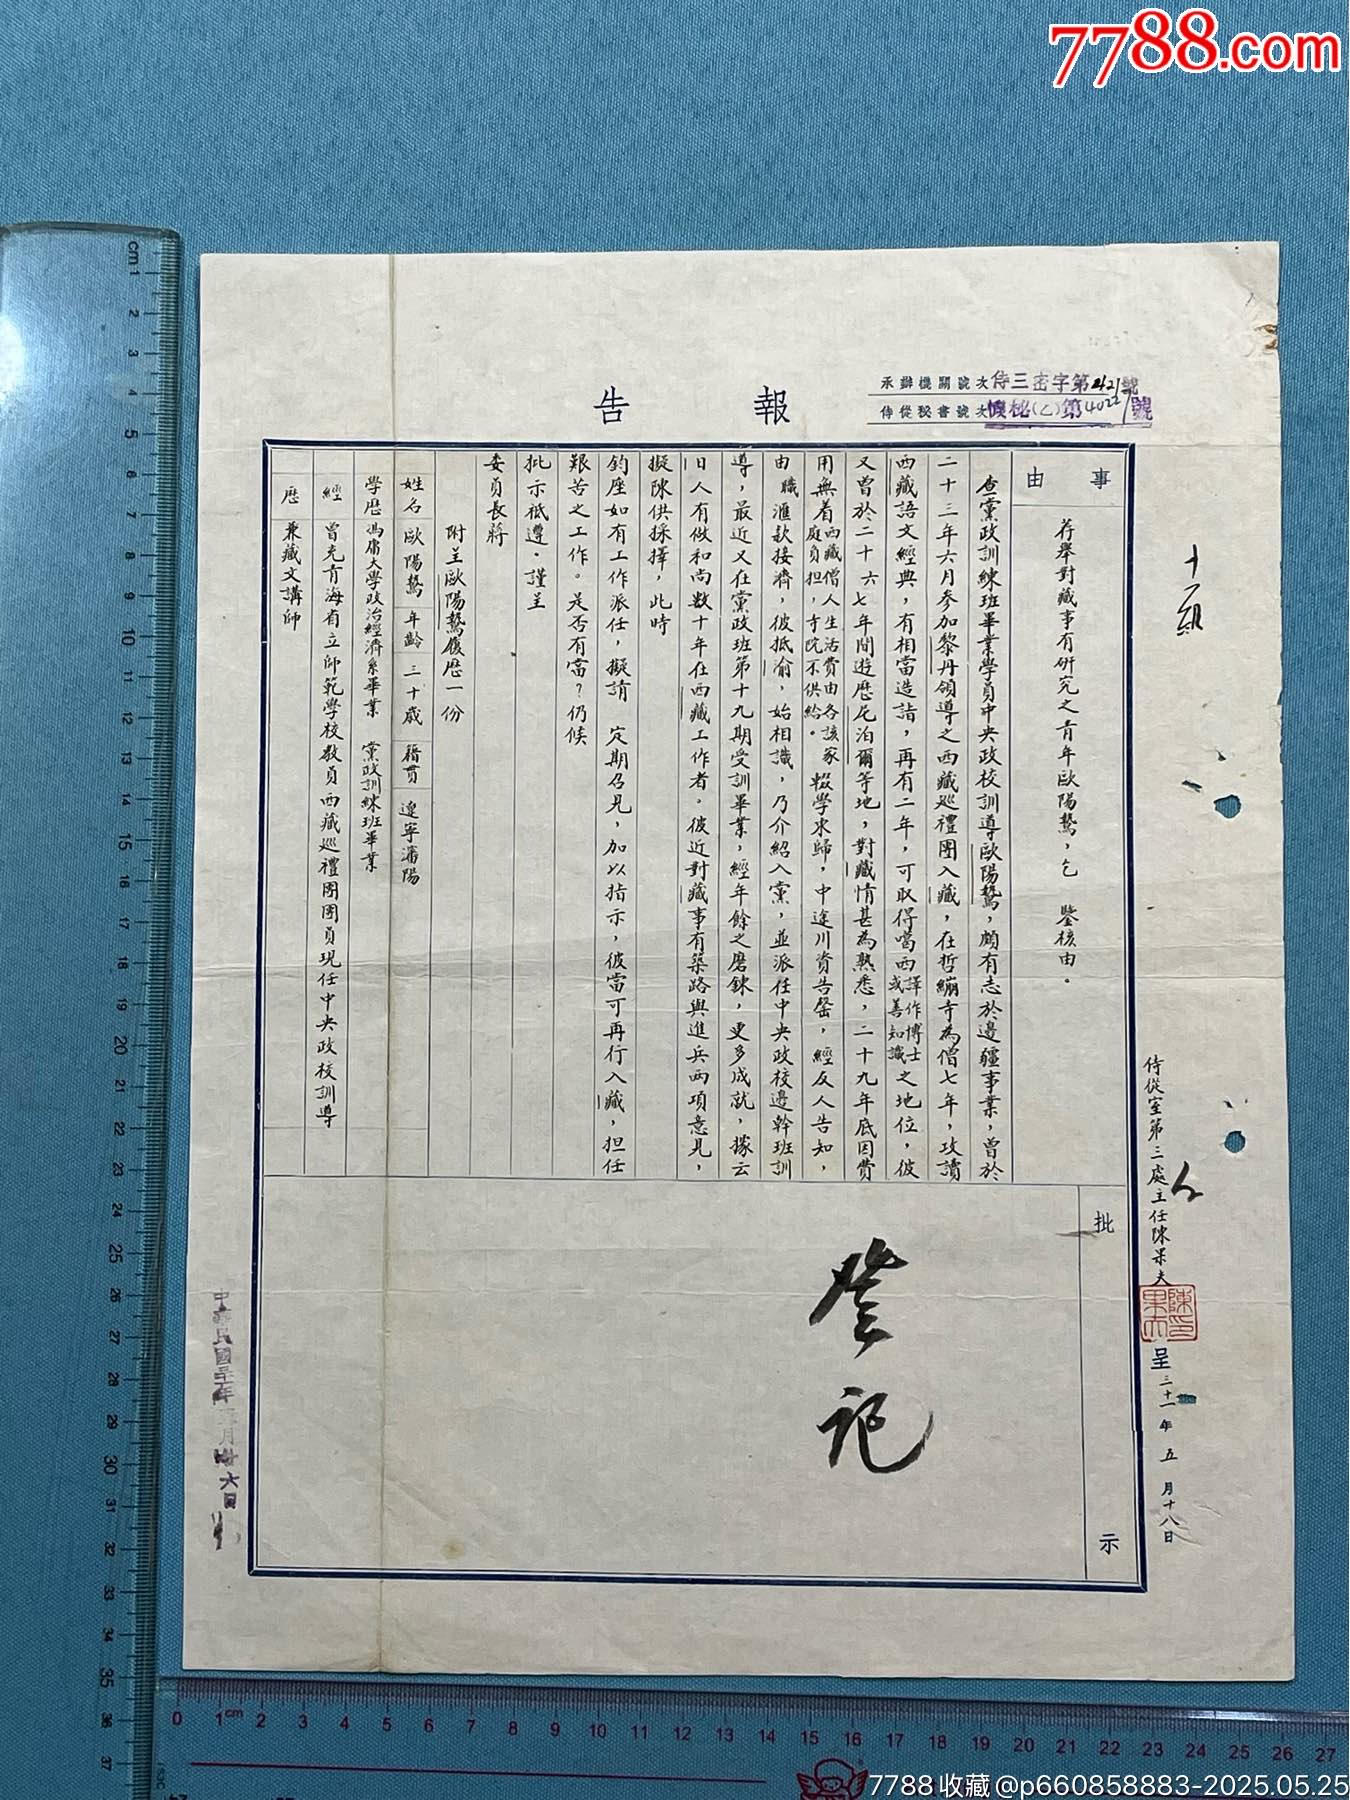 7788.com
報告
承辦機關號次侍三密字第2421號
侍從秘書號次機秘(乙)第4022號
十一組
侍從室第三處主任陳果夫
呈三十一年五月十八日
事由
荐舉對藏事有研究之青年歐陽鷙,乞 鑒核由。
查黨政訓練班畢業學員中央政校訓導歐陽鷙,頗有志於邊疆事業,曾於
二十三年六月參加黎丹領導之西藏巡禮團入藏,在哲繃寺為僧七年,攻讀
西藏語文經典,有相當造詣,再有二年,可取得噶西譯作博士或善知識之地位,彼
又曾於二十六七年間遊歷尼泊爾等地,對藏情甚為熟悉,二十九年底因費
用無着西藏僧人生活費由各該家庭負担,寺院不供給。輟學東歸,中途川資告罄,經友人告知,
由職滙款接濟,彼抵渝,始相識,乃介紹入黨,並派任中央政校邊幹班訓
導,最近又在黨政班第十九期受訓畢業,經年餘之磨鍊,更多成就,據云
日人有做和尚数十年在西藏工作者。彼近對藏事有築路與進兵两項意見,
擬陳供採擇,此時
鈞座如有工作派任,擬請 定期召見,加以指示,彼當可再行入藏,担任
艱苦之工作。是否有當?仍候
批示祗遵。謹呈
委員長蔣
附呈歐陽鷙履歷一份
姓名 歐陽鷙 年齡 三十歲 籍貫 遼寧瀋陽
學歷 馮庸大學政治經濟系畢業 黨政訓練班畢業
經歷 曾充青海省立師範學校教員西藏巡禮團團員現任中央政校訓導
兼藏文講師
批示
登記
陳果夫印
中華民國卅一年五月廿六日
7788收藏@p660858883-2025.05.25